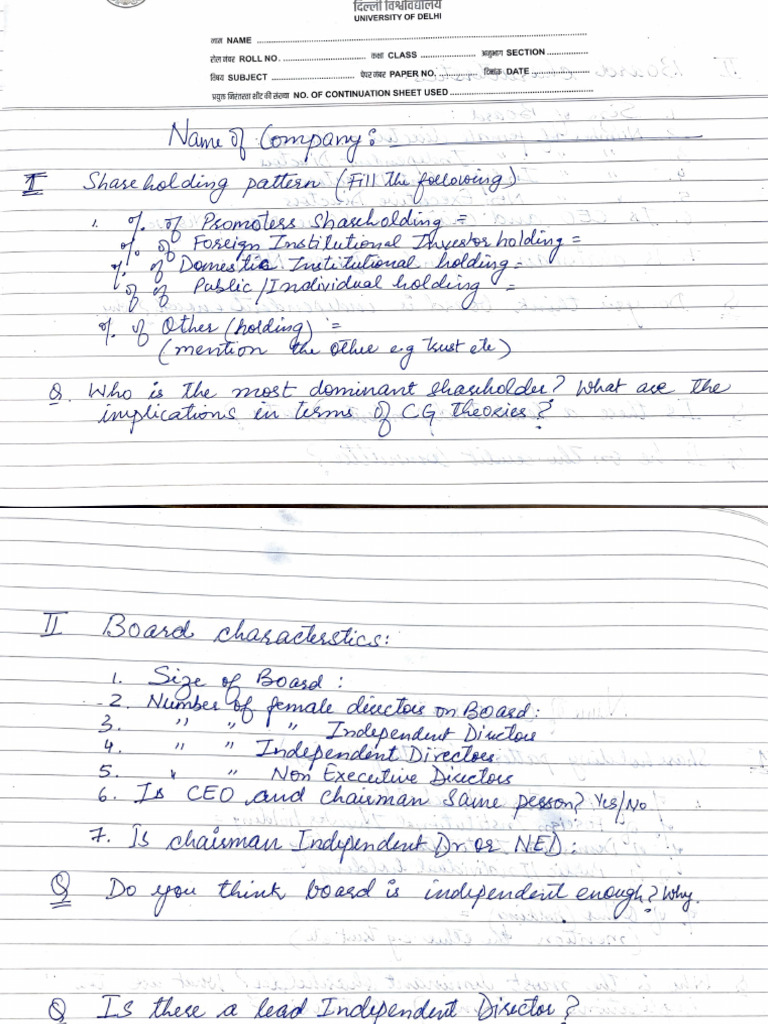 दिल्ली विश्वविद्यालय
UNIVERSITY OF DELHI
नाम NAME
रोल नंबर ROLL NO. कक्षा CLASS अनुभाग SECTION
विषय SUBJECT पेपर नंबर PAPER NO. दिनांक DATE
प्रयुक्त निरंतरता शीट की संख्या NO. OF CONTINUATION SHEET USED
Name of Company:
I Shareholding pattern (Fill the following)
1. % of Promoters Shareholding =
% of Foreign Institutional Investor holding =
% of Domestic Institutional holding =
% of Public/Individual holding =
% of Other (holding) =
(mention the other e.g trust etc)
Q. Who is the most dominant shareholder? What are the
implications in terms of CG theories?
II Board characterstics:
1. Size of Board :
2. Number of female directors on Board:
3. " " " Independent Director
4. " " Independent Directors
5. " " Non Executive Directors
6. Is CEO and chairman same person? Yes/No
7. Is chairman Independent Dr or NED:
Q Do you think board is independent enough? Why.
Q Is there a lead Independent Director?